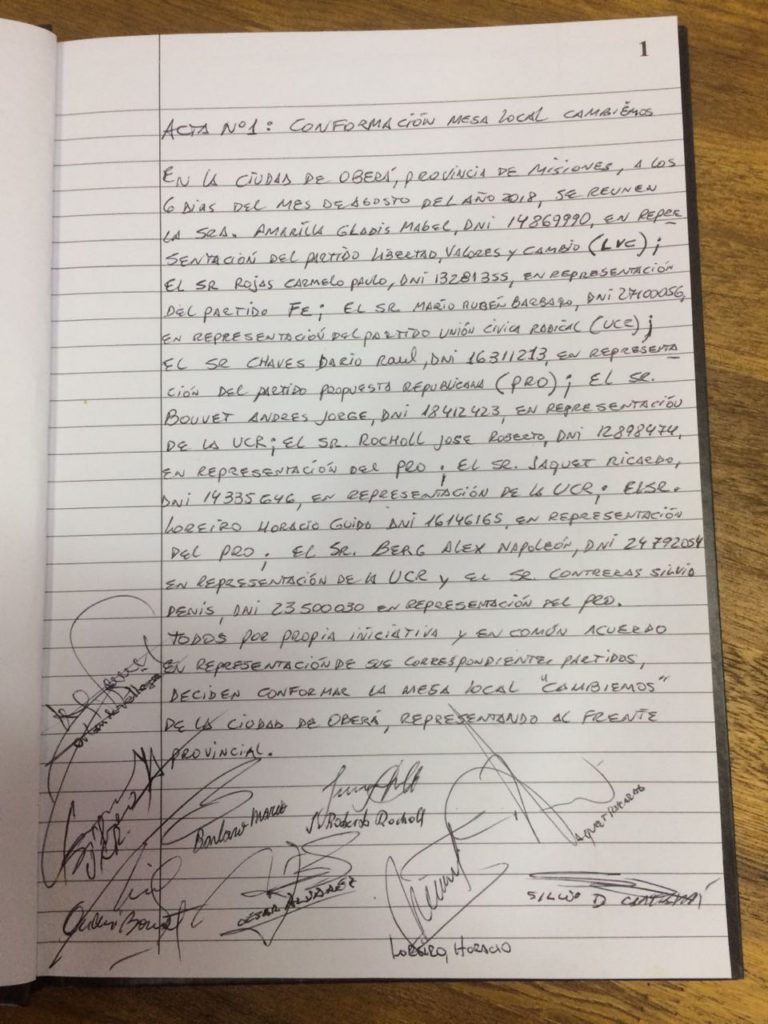 1
ACTA Nº1: CONFORMACIÓN MESA LOCAL CAMBIEMOS
EN LA CIUDAD DE OBERÁ, PROVINCIA DE MISIONES, A LOS
6 DIAS DEL MES DE AGOSTO DEL AÑO 2018, SE REUNEN
LA SRA. AMARILLA GLADIS MABEL, DNI 14869990, EN REPRE
SENTACIÓN DEL PARTIDO LIBERTAD, VALORES Y CAMBIO (LVC);
EL SR ROJAS CARMELO PAULO, DNI 13281355, EN REPRESENTACIÓN
DEL PARTIDO FE; EL SR. MARIO RUBÉN BARBARO, DNI 27100056,
EN REPRESENTACIÓN DEL PARTIDO UNIÓN CIVICA RADICAL (UCR);
EL SR CHAVES DARIO RAUL, DNI 16311213, EN REPRESENTA
CIÓN DEL PARTIDO PROPUESTA REPUBLICANA (PRO); EL SR.
BOUVET ANDRES JORGE, DNI 18412423, EN REPRESENTACIÓN
DE LA UCR; EL SR. ROCHOLL JOSE ROBERTO, DNI 12898474,
EN REPRESENTACIÓN DEL PRO; EL SR. JAQUET RICARDO,
DNI 14335646, EN REPRESENTACIÓN DE LA UCR; EL SR.
LOREIRO HORACIO GUIDO DNI 16146165, EN REPRESENTACIÓN
DEL PRO; EL SR. BERG ALEX NAPOLEÓN, DNI 24792054
EN REPRESENTACIÓN DE LA UCR Y EL SR. CONTRERAS SILVIO
DENIS, DNI 23500030 EN REPRESENTACIÓN DEL PRO.
TODOS POR PROPIA INICIATIVA Y EN COMÚN ACUERDO
EN REPRESENTACIÓN DE SUS CORRESPONDIENTES PARTIDOS,
DECIDEN CONFORMAR LA MESA LOCAL "CAMBIEMOS"
DE LA CIUDAD DE OBERÁ, REPRESENTANDO AL FRENTE
PROVINCIAL.
Barbaro Mario
J. Roberto Rocholl
CESAR ALVAREZ
SILVIO D
LOREIRO, HORACIO